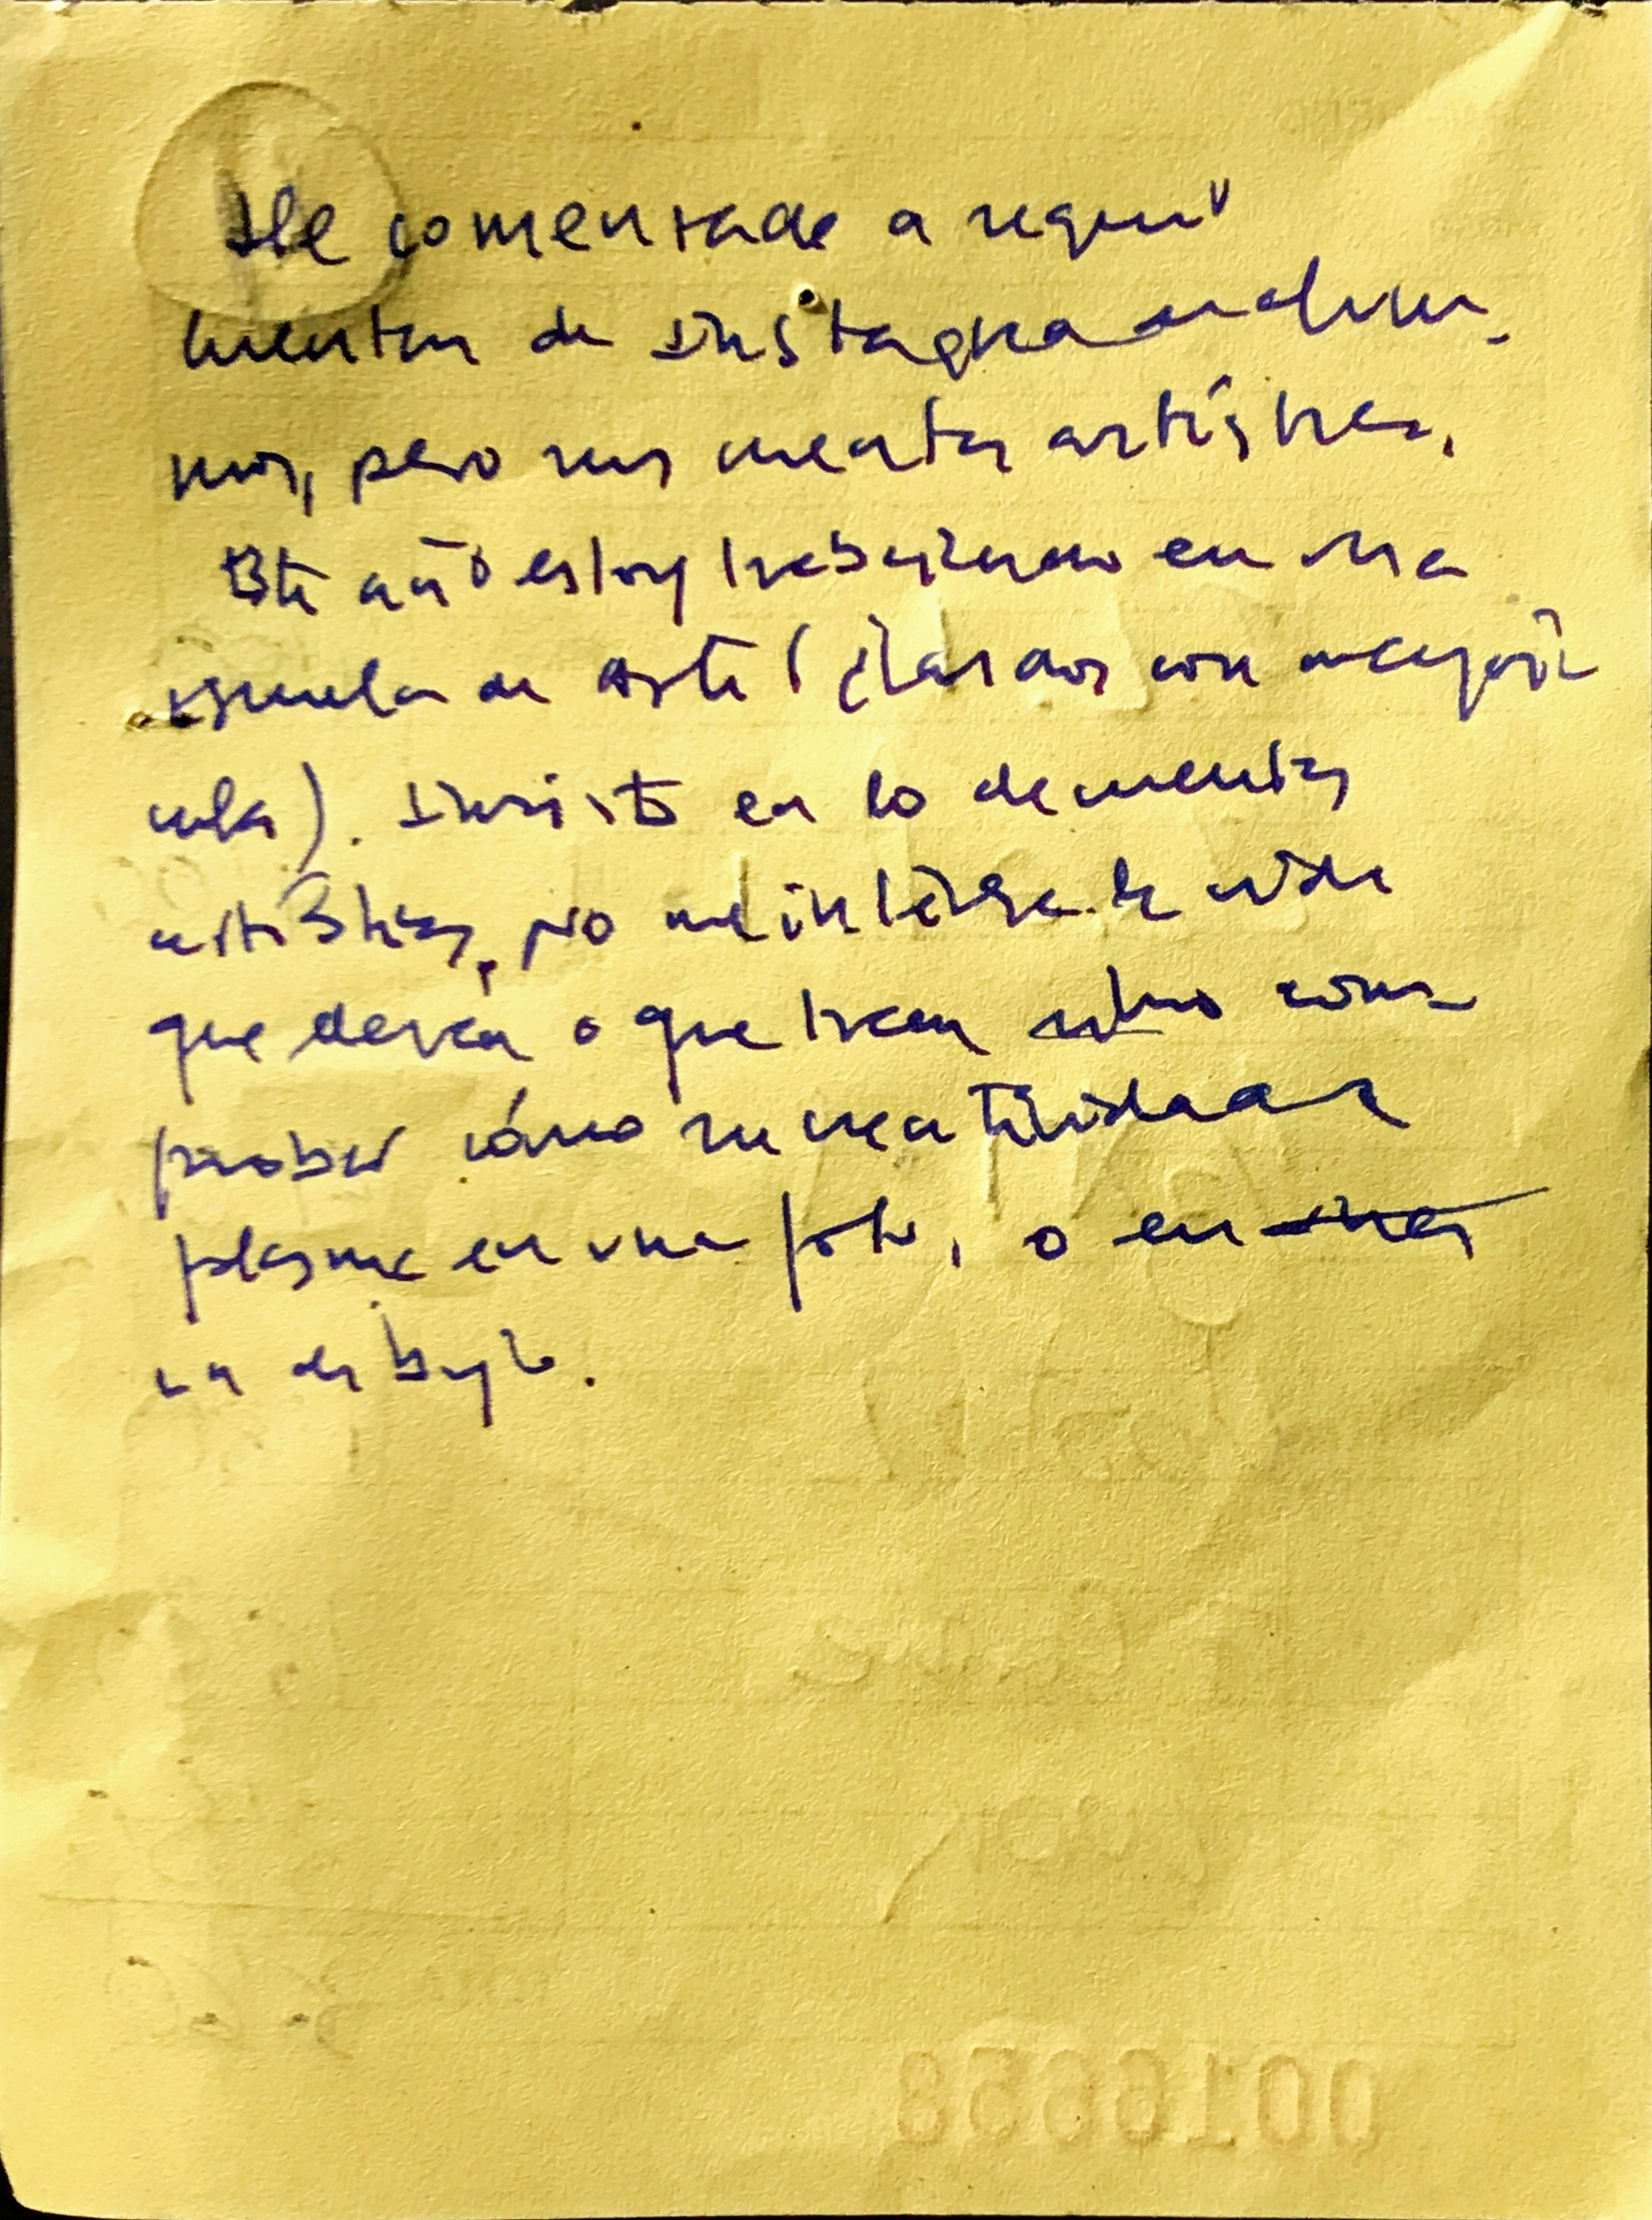 He comentado a seguir
cuentas de Instagram de alum-
nos, pero sus cuentas artísticas.
Este año estoy trabajando en una
escuela de arte (ciertos con mayús
cula). Insisto en lo de cuentas
artísticas, no me interesa la vida
que desean o que traen sino com-
probar cómo su creatividad se
plasma en una foto, o en
un dibujo.
0016658